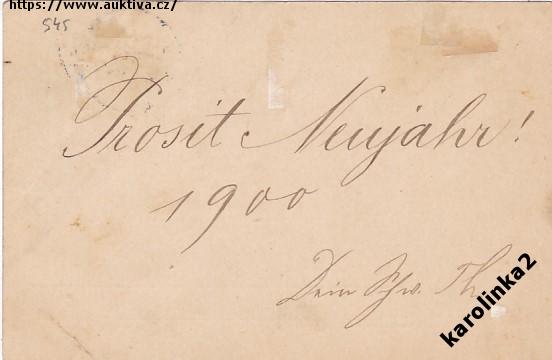 https://www.auktiva.cz/
545
Prosit Neujahr!
1900
Dein Schw. Th.
karolinka2